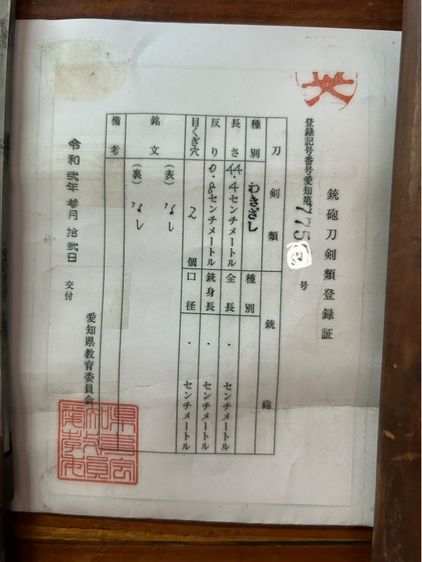 銃砲刀剣類登録証
登録記号番号愛知第775 号
刀剣類 銃砲
種別 わきざし 種別
長さ 44.4センチメートル 全長 . センチメートル
反り 0.8センチメートル 銃身長 . センチメートル
目くぎ穴 2個 口径 . センチメートル
銘文 (表) なし
(裏) なし
備考
令和弐年参月拾弐日 交付
愛知県教育委員会